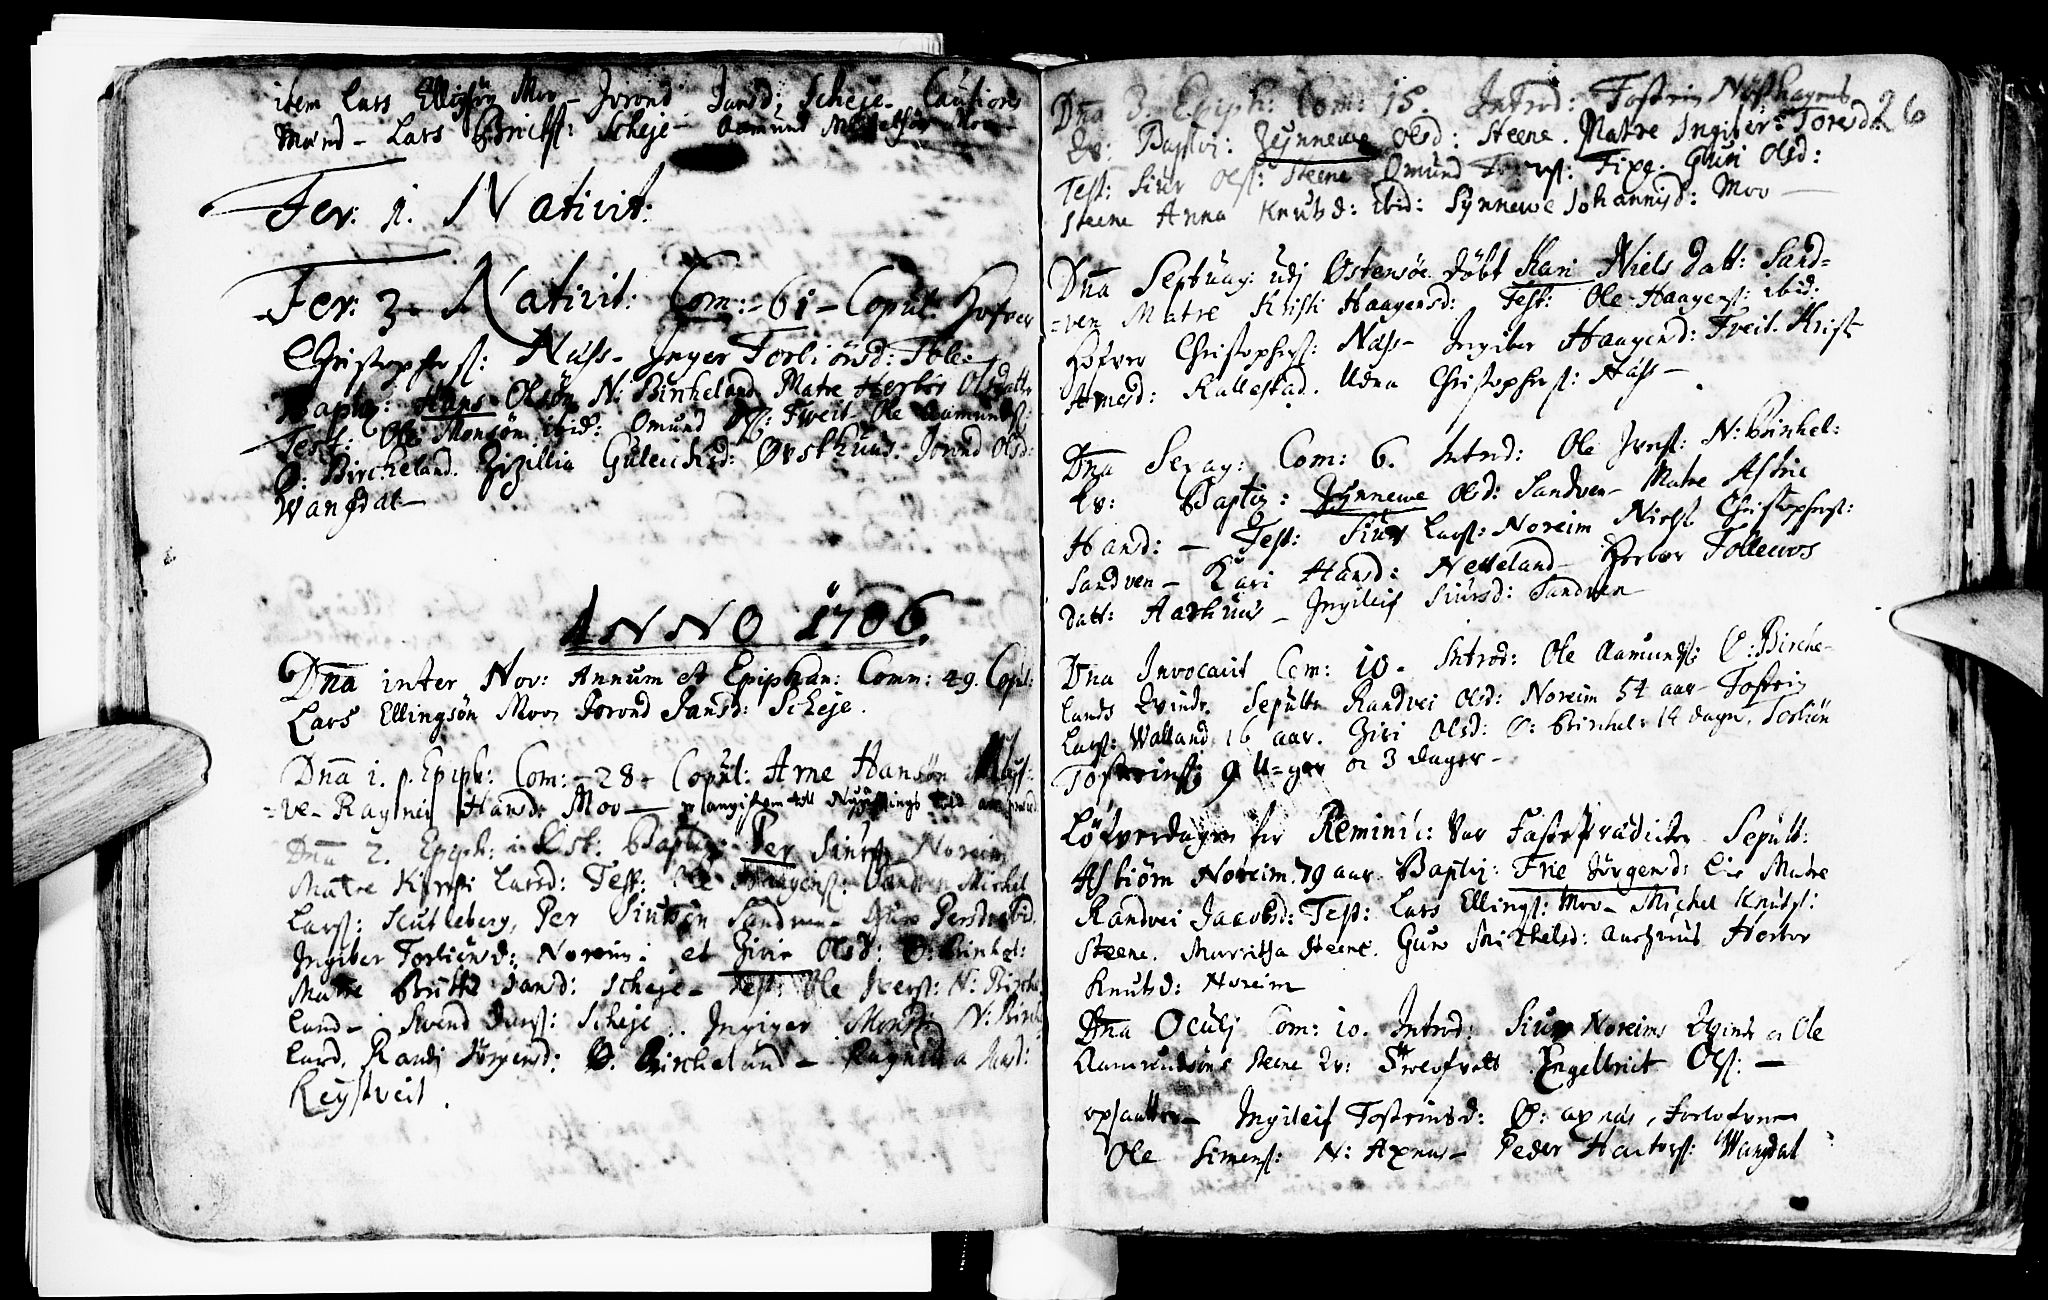 item Lars Ellingsøn Moo – Jorond Jansd: Scheje – Cautions
Mænd – Lars Bricksf: Scheje – Aamund
Fer: 1. Nativit:
Fer: 3. Nativit: Com: – 61 – Copul:
Christophersf: Næss – Inger Torbiörsd:
Baptiz: Hans Olsøn N: Bircheland Matre Herbor Olsdatter
Test: Ole Monsøn ibid: Omund Tveit – Ole Aamundsf:
Ø: Bircheland. Zizillia Guleichsd: Øvsthuus. Jorond Olsd:
Wangdal –
ANNO 1706.
Dna inter Nov: Annum et Epiphan: Comm: 49. Copul:
Lars Ellingsøn Moo Jorond Jansd: Scheje.
Dna 1. p. Epiph: Com: – 28 – Copul: Arne Hansøn
=ve – Ragnei Hansd: Moo –
Dna 2. Epiph: Baptiz: Per Siursf: Noreim
Matre Kirsti Larsd: Test: Ole Haagensf: Sandven Michel
Larsf: Scutleberg, Per Siursøn Sandven – Persdr ibid
Ingiber Torbiörsd: Noreim: et Ziri Olsd: Ø: Birchel:
Matre Britte Jansd: Scheje – Test: Ole Iversf: N: Birche
land – Svend Larsf: Scheje. Ingiger N: Birche
land, Randi Jörgensd: Ø. Bircheland – Ragnilda
Reystveit.
26
Dna 3. Epiph: Com: 15. Introd: Tostein Nøsthagens
Qv: Baptiz: Zynnewe Olsd: Steene. Matre Ingiber Toresd:
Test: Siur Olsf: Steene Omund Fixe. Guri Olsd:
Steene Anna Knutsd: ibid: Synnewe Johannisd: Moo –
Dna Septuag: udj Østensøe döbt Kari Niels datt: Sand=
=ven Matre Kristi Haagensd: Test: Ole Haagensf: ibid:
Christophersf: Næss – Ingiber Haagensd: Tveit. Krist
Arnesd: Kallestad. Udna Christophersf: Næss –
Dna Sexag: Com: 6. Introd: Ole Iversf: N: Birkel:
Qv: Baptiz: Zynnewe Olsd: Sandven – Matre Astrie
Hansd: – Test: Siur Larsf: Noreim Niels Christophersf:
Sandven – Kari Hansd: Netteland – Herbor Tolleivs
datt: Aarhuus – Ingileif Siursd: Sandven
Dna Invocavit Com: 10. Introd: Ole Aamundsf: Ø: Birche-
lands Qvinde. Sepulta Randvei Olsd: Noreim 54 aar – Tostein
Larsf: Walland 16 aar. Ziri Olsd: Ø: Birkel: 14 dage, Torbiön
Tosteinsf: 9 U=ger oc 3 dager –
Löfverdagen for Reminic: var Fasteprædicken Sepult:
Asbiörn Noreim. 79 aar. Baptiz: Frie Jörgensd: Lie Matre
Randvei Jacobsd: Test: Lars Ellingsf: Moo – Michel Knutsf:
Steene. Marritha Steene. Guro Michelsd: Herbor
Knutsd: Noreim
Dna Oculj Com: 10. Introd: Siur Noreims Qvinde oc Ole
Aamundsøns Steene Qv: Engelbrict Olsf: –
opsætter – Ingileif Tosteinsd: Ø: axnæs, Forlofvere
Ole Simensf: N: Axnæs – Peder Wangdal